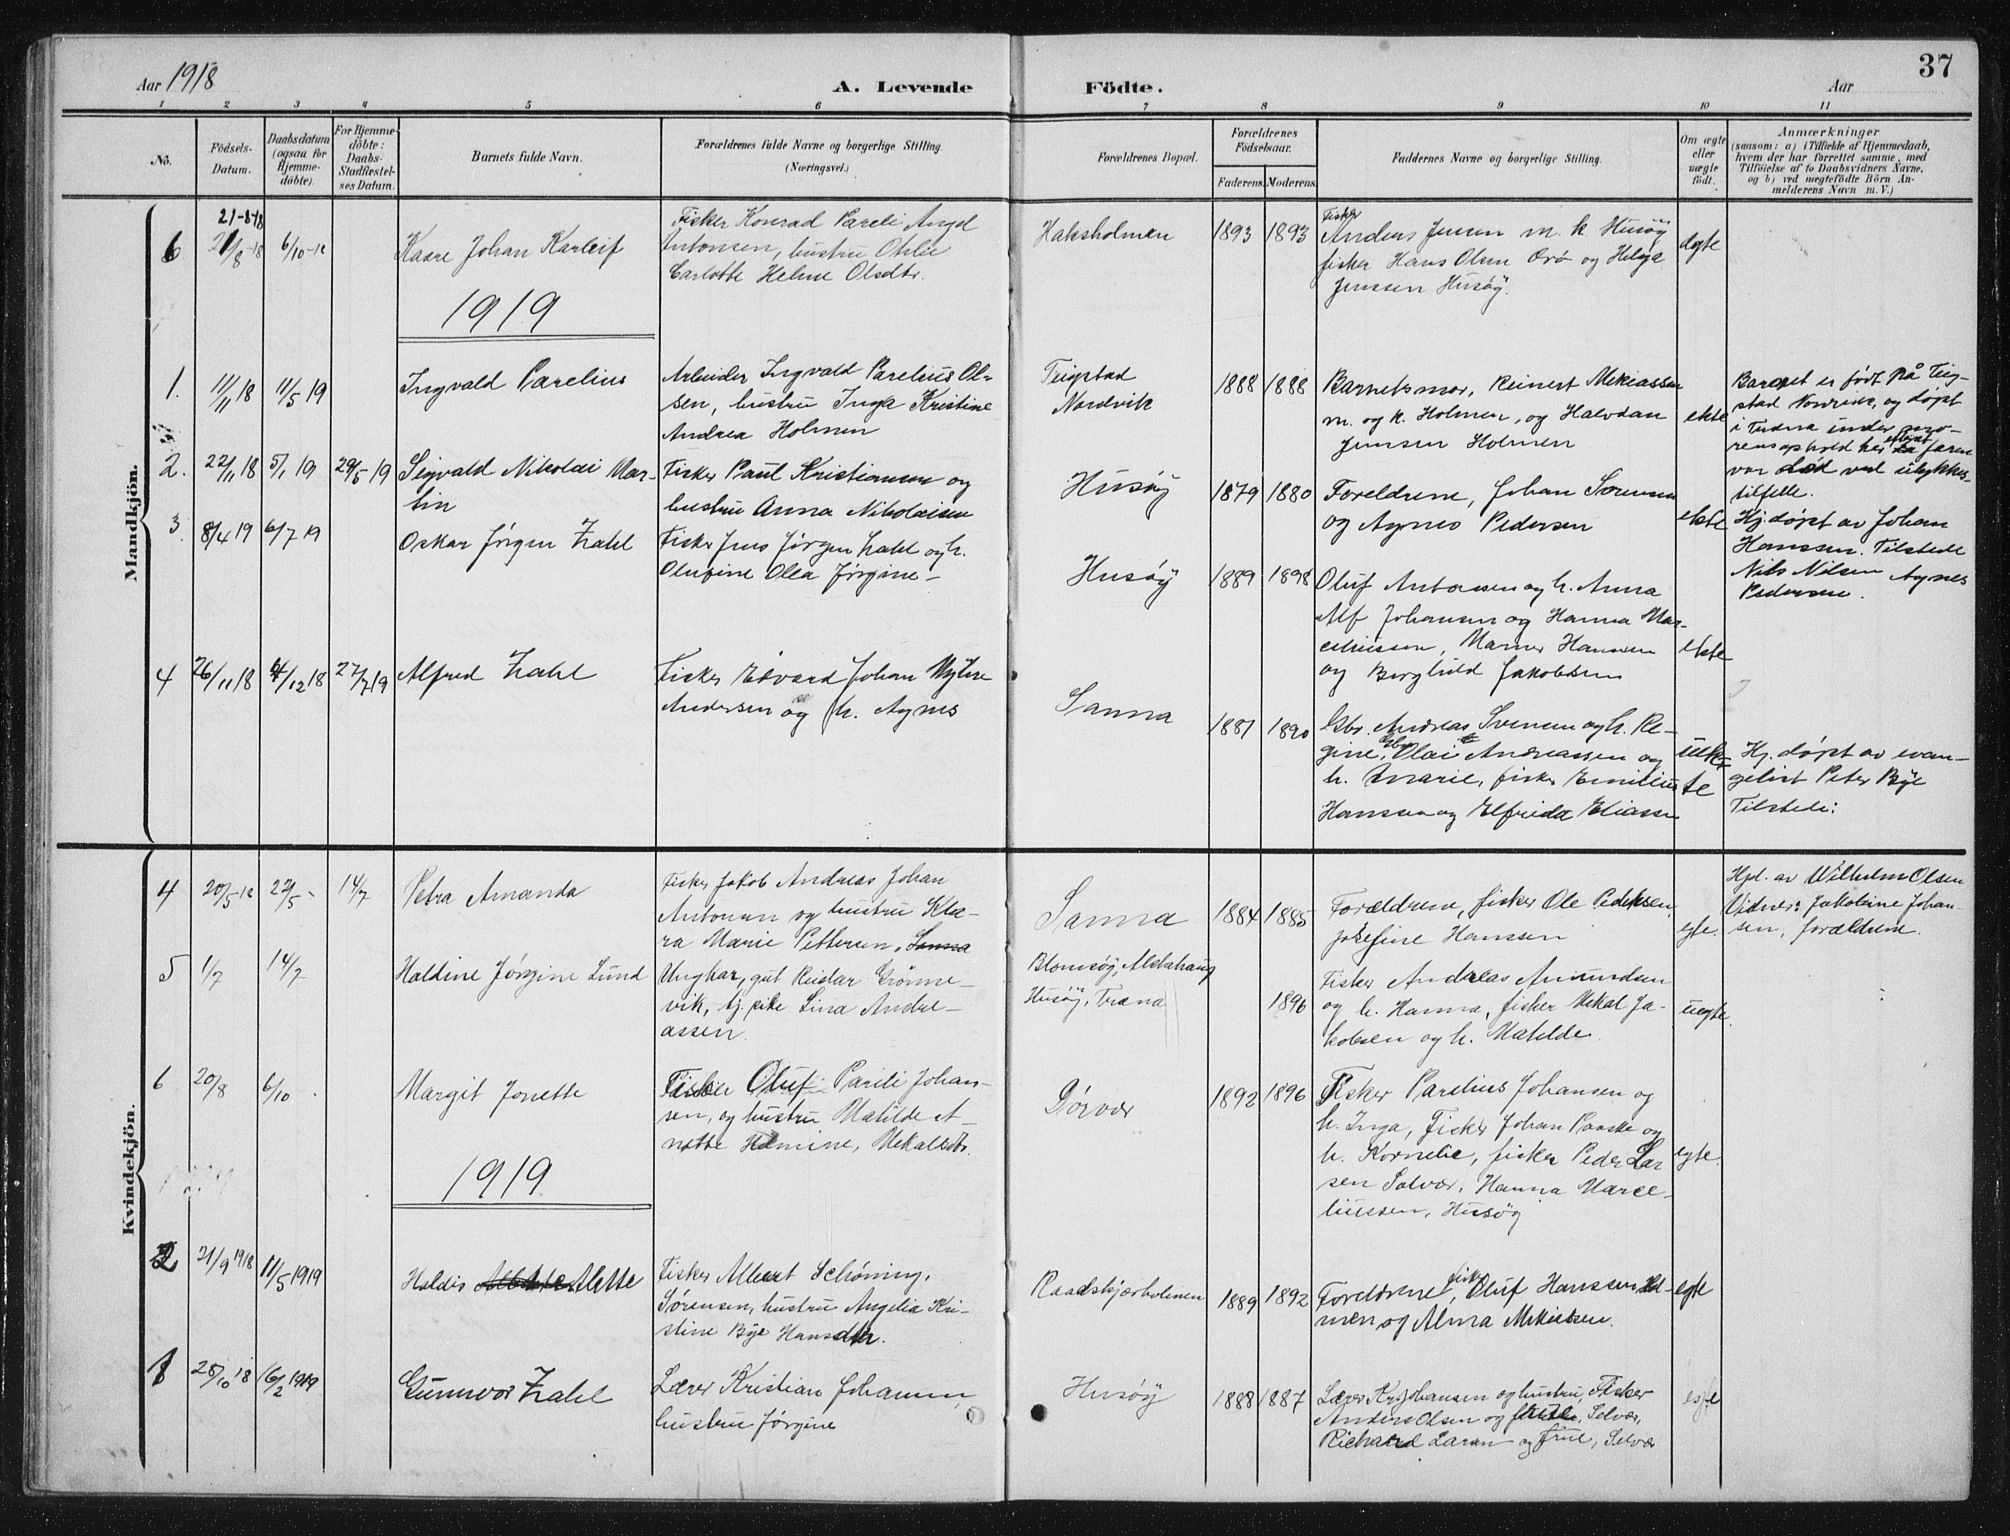 Aar 1918
A. Levende
Födte.
Aar
37
1 2 3 4 5 6 7 8 9 10 11
No.
Födsels-
Datum.
Daabsdatum
(ogsaa for
Hjemme-
döbte).
For Hjemme-
döbte:
Daabs-
Stadfæstel-
ses Datum.
Barnets fulde Navn.
Forældrenes fulde Navne og borgerlige Stilling.
(Næringsvei.)
Forældrenes Bopæl.
Forældrenes
Födselsaar.
Faderens. Moderens.
Faddernes Navne og borgerlige Stilling.
Om ægte
eller
uægte
födt.
Anmærkninger
(saasom: a) i Tilfælde af Hjemmedaab,
hvem der har forrettet samme, med
Tilföielse af to Daabsvidners Navne,
og b) ved uægtefödte Börn An-
melderens Navn m. V.)
Mandkjön.
21-8-18
6 21/8-18 6/10-18 Kaare Johan Karleif
Fisker Konrad Pareli Angel
Antonsen, hustru Otilie
Carlotte Helene Olsdtr.
Haksholmen
1893 1893
Fisker
Anders Jensen m. k. Husöy
fisker Hans Olsen Örö og Helga
Jenssen Husöy.
ægte
1919
1. 11/11 18 11/5 19 Ingvald Parelius
Arbeider Ingvald Parelius Ol-
sen, hustru Inga Kristine
Andrea Holmen
Teigstad
Nordvik
1888 1888
Barnets mor, Reinert Mekiassen
m. og k. Holmen, og Halvdan
Jenssen Holmen
ekte
Barnet er født på Teig-
stad Nordvik, og døpt
i Træna under mo-
rens ophold her efterat faren
var død ved ulykkes-
tilfelle.
2. 22/11 18 5/1 19 29/5 19 Sigvald Nikolai Mar-
tin
Fisker Paul Kristiansen og
hustru Anna Nikolaisen
Husöy
1879 1880
Foreldrene, Johan Sorensen
og Agnes Pedersen
ekte
Hj. døpt av Johan
Hanssen. Tilstede
Nils Nilsen Agnes
Pedersen.
3. 8/4 19 6/7 19 Oskar Jörgen Zahl
Fisker Jens Jörgen Zahl og h.
Olufine Olea Jörgine
Husöy
1889 1898
Oluf Antonsen og h. Anna
Alf Johansen og Hanna Mar-
celiussen, Marner Hanssen
og Borghild Jakobsen
ekte
4 26/11 18 4/12 18 27/7 19 Alfred Zahl
Fisker Edvard Johan
Andersen og h. Agnes
Sanna
1887 1890
Gbr. Andreas Svensen og h. Re-
gine, Gbr Olai Andreassen og
h. Marie, fisker Emilius
Hanssen og Elfrida Eliassen
uek-
te
Hj. døpt av evan-
gelist Peter Bye
Tilstede:
Kvindekjön.
4 20/5-18 22/5- 14/7 Petra Amanda
Fisker Jakob Andreas Johan
Antonsen og hustru Kla-
ra Marie Pettersen, Sanna
Sanna
1884 1885
Forældrene, fisker Ole Pedersen,
Josefine Hanssen
egte.
Hjd. av Wilhelm Olsen
Vidner: Jakobine Johan-
sen, forældrene.
5 1/7 14/7 Haldine Jørgine Lund
Ungkar, gut Reidar Grønne-
vik, tj. pike Lina Andre-
assen.
Blomsöy, Alstahaug
Husöy, Træna
1896
Fisker Andreas Amundsen
og h. Hanna, fisker Mekal Ja-
kobsen og h. Matilde.
uegte.
6 20/8 6/10 Margit Jonette
Fisker Oluf Pareli Johan-
sen, og hustru Matilde A-
nette Hemine, Mekalsdtr.
Dörvær
1892 1896
Fisker Parelius Johansen og
h. Inga, Fisker Johan Paaske og
h. Kornelie, fisker Peder Lar
sen Solvær, Hanna Marce-
liussen, Husøy
egte.
1919
2 21/9 1918 11/5 1919 Haldis Alette
Fisker Albert Schøning,
Sørensen, hustru Angelia Kri-
stine Bye Hansdtr.
Raadskjærholmen
1889 1892
Foreldrene, fisker Oluf Hanssen Hol-
men og Alma Mekielsen.
egte
1 28/10 18 16/2 1919 Gunnvor Zahl
Lærer Kristian Johansen,
hustru Jørgine
Husöy
1888 1887
Lærer Kr. Johansen og hustru, Fisker
Anders Olsen og frue, Selvær,
Richard Larsen og frue, Selvær
egte